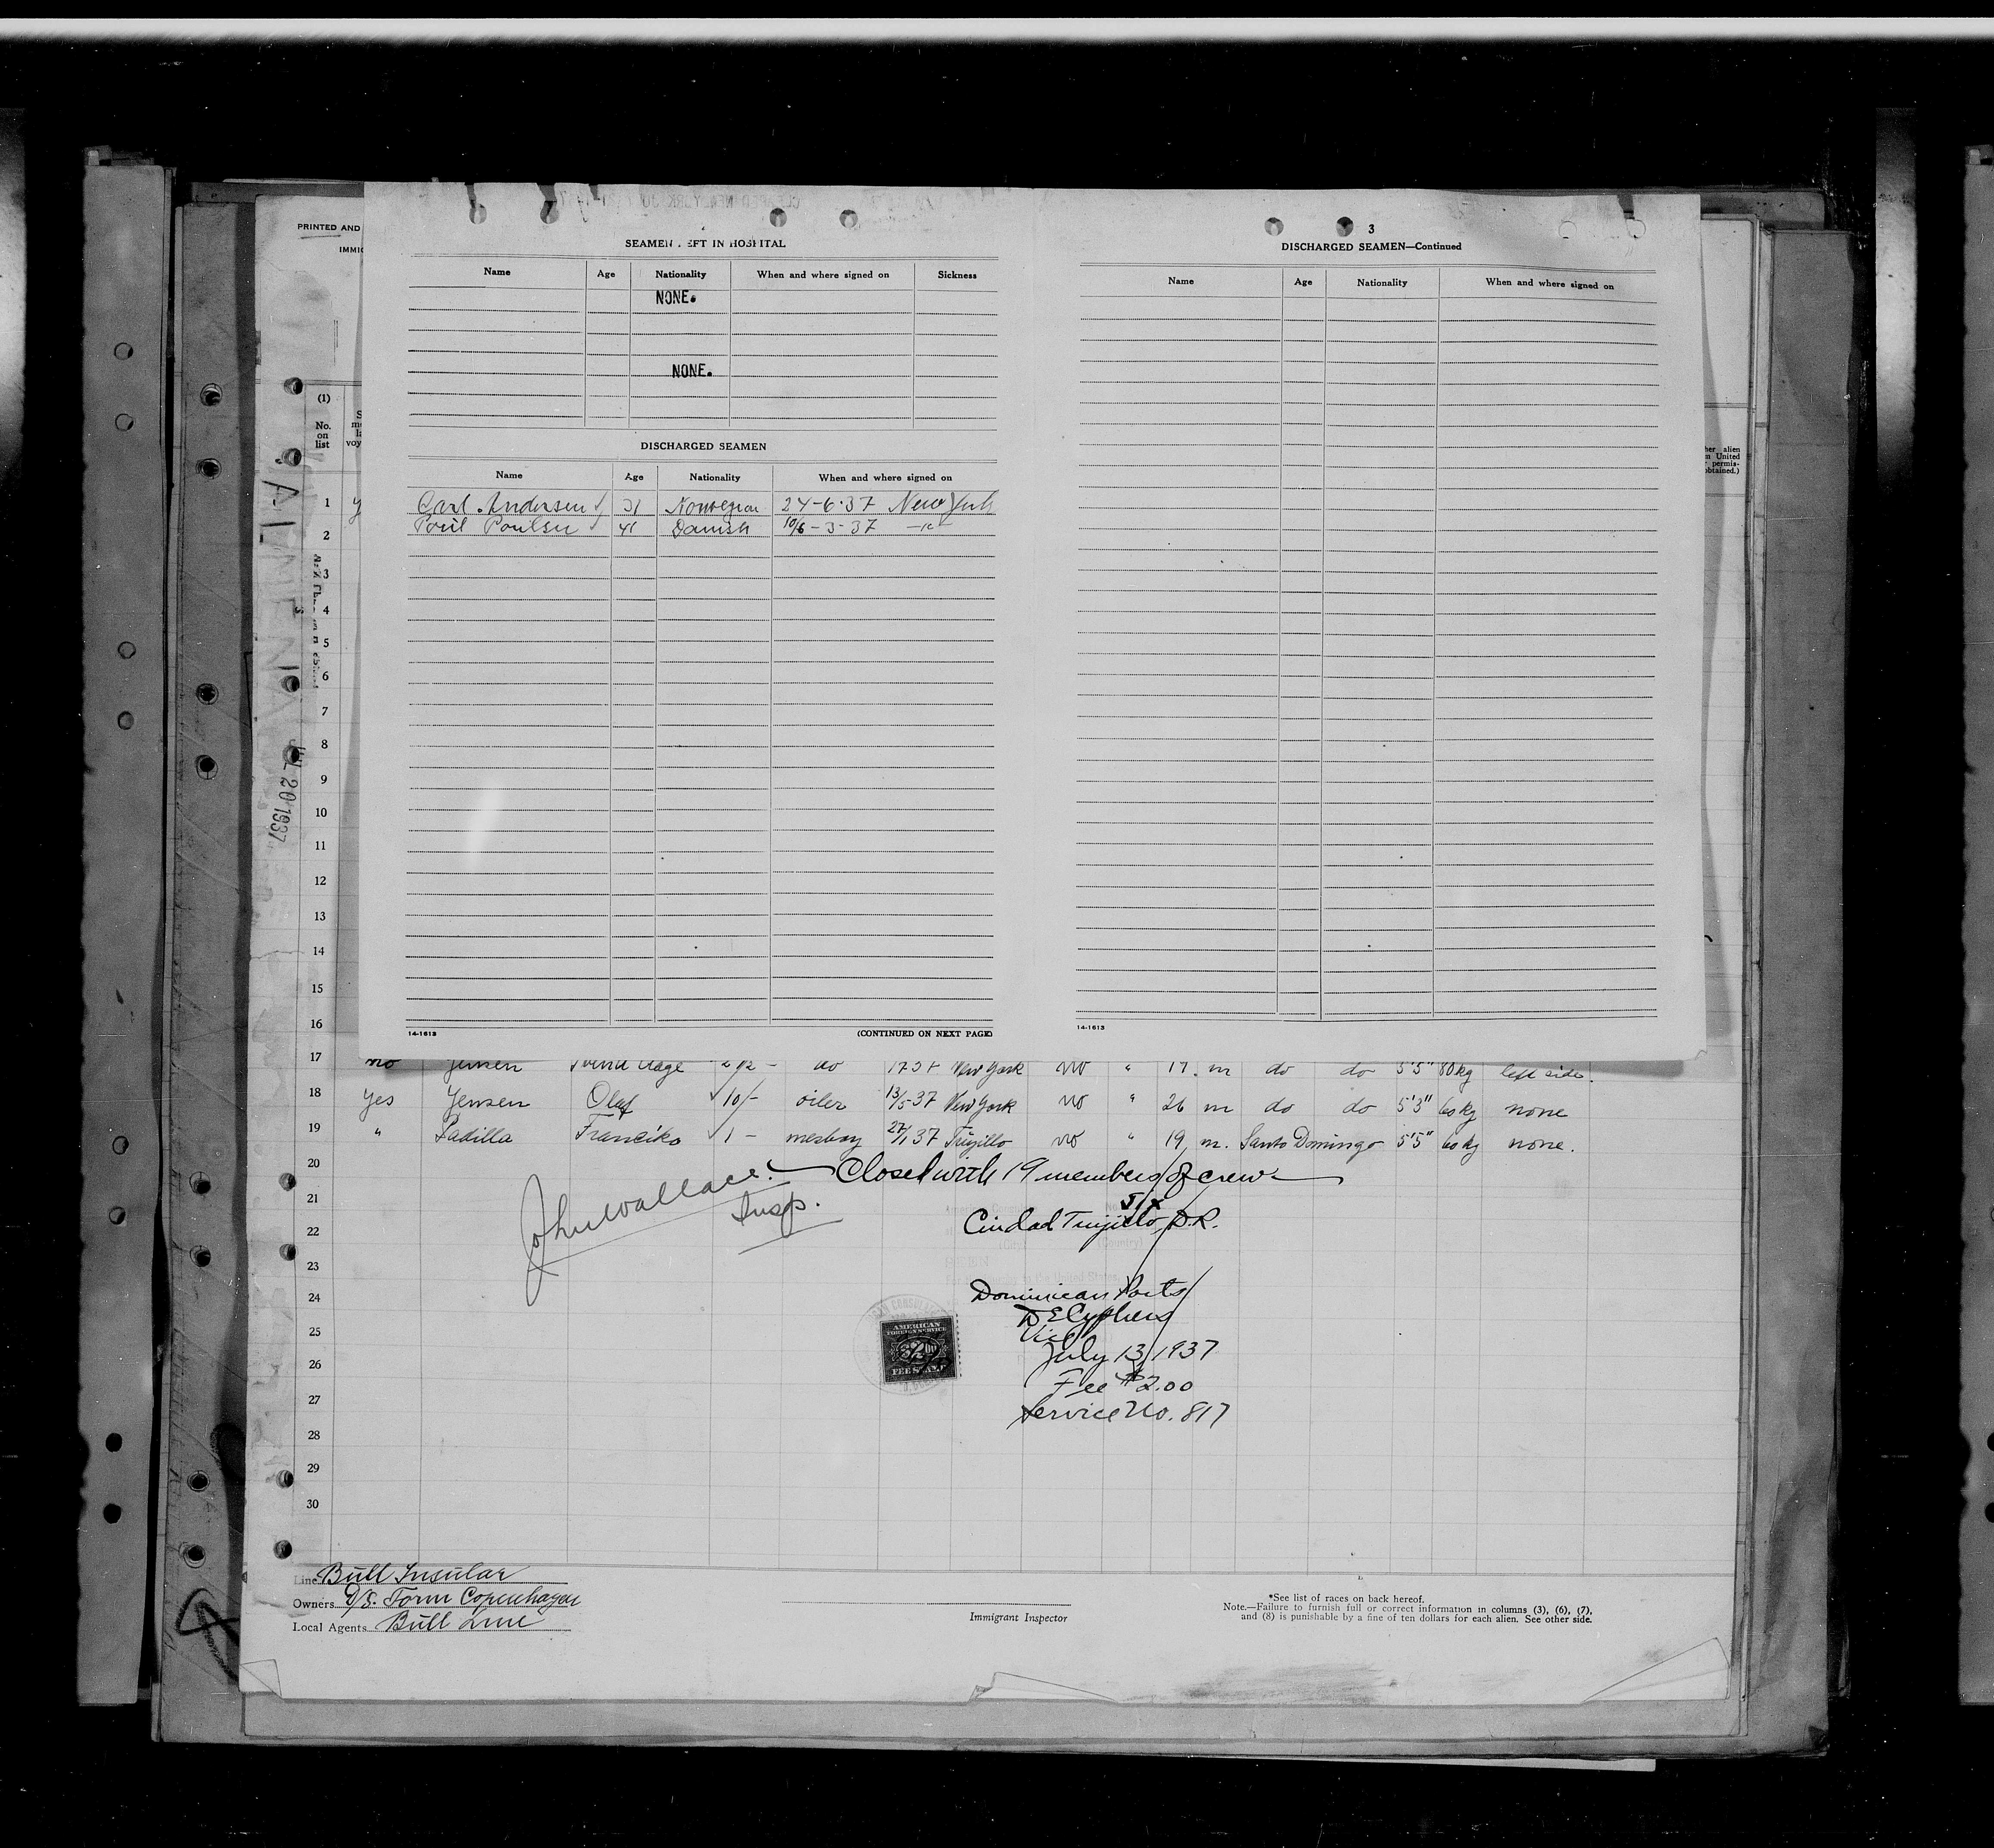 SEAMEN LEFT IN HOSPITAL
Name Age Nationality When and where signed on Sickness
NONE.
NONE.
DISCHARGED SEAMEN
Name Age Nationality When and where signed on
Carl Andersen 31 Norwegian 24-6-37 New York
Poul Poulsen 41 Danish 10/6-3-37 -"-
14-1613 (CONTINUED ON NEXT PAGE)
3
DISCHARGED SEAMEN—Continued
Name Age Nationality When and where signed on
14-1613
PRINTED AND
IMMIG
(1)
No. on list
her alien
n United
permis-
obtained.)
JUL 20 1937
1
2
3
4
5
6
7
8
9
10
11
12
13
14
15
16
17 no Jensen Svend Aage New York no " 17 m do do 5'5" 80kg left side.
18 yes Jensen Olaf 10/- oiler 13/5-37 New York no " 26 m do do 5'3" 60 kg none
19 " Padilla Francisko 1 - mesboy 27/1 37 Trujillo no " 19 m. Santo Domingo 5'5" 60 kg none.
20
21
22
23
24
25
26
27
28
29
30
Closed with 19 members of crew
John Wallace
Insp.
Ciudad Trujillo, D.R.
Dominican Ports
July 13, 1937
Fee $2.00
Service No. 817
AMERICAN
FOREIGN SERVICE
FEE STAMP
Line Bull Insular
Owners D/S. Torm Copenhagen
Local Agents Bull Line
Immigrant Inspector
*See list of races on back hereof.
Note.—Failure to furnish full or correct information in columns (3), (6), (7),
and (8) is punishable by a fine of ten dollars for each alien. See other side.